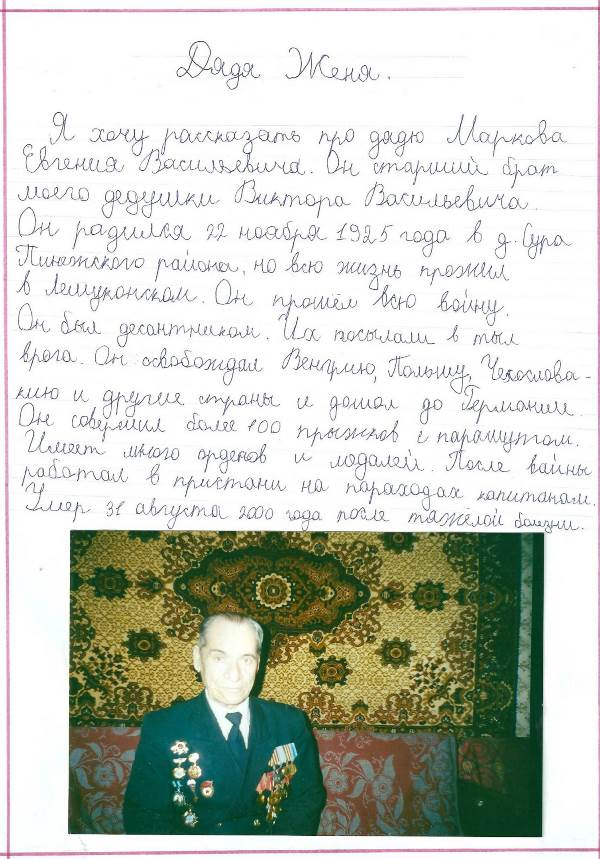 Дядя Женя.
Я хочу рассказать про дядю Маркова
Евгения Васильевича. Он старший брат
моего дедушки Виктора Васильевича.
Он радился 22 ноября 1925 года в д. Сура
Пинежского района, но всю жизнь прожил
в Лемуконском. Он прошёл всю войну.
Он был десантником. Их посылали в тыл
врага. Он освобождал Венгрию, Польшу, Чехослова-
кию и другие страны и дошол до Германии.
Он совершил более 100 прыжков с парашутом.
Имеет много орденов и модалей. После вайны
работал в пристани на параходах капитанам.
Умер 31 августа 2000 года после тяжёлой балезни.